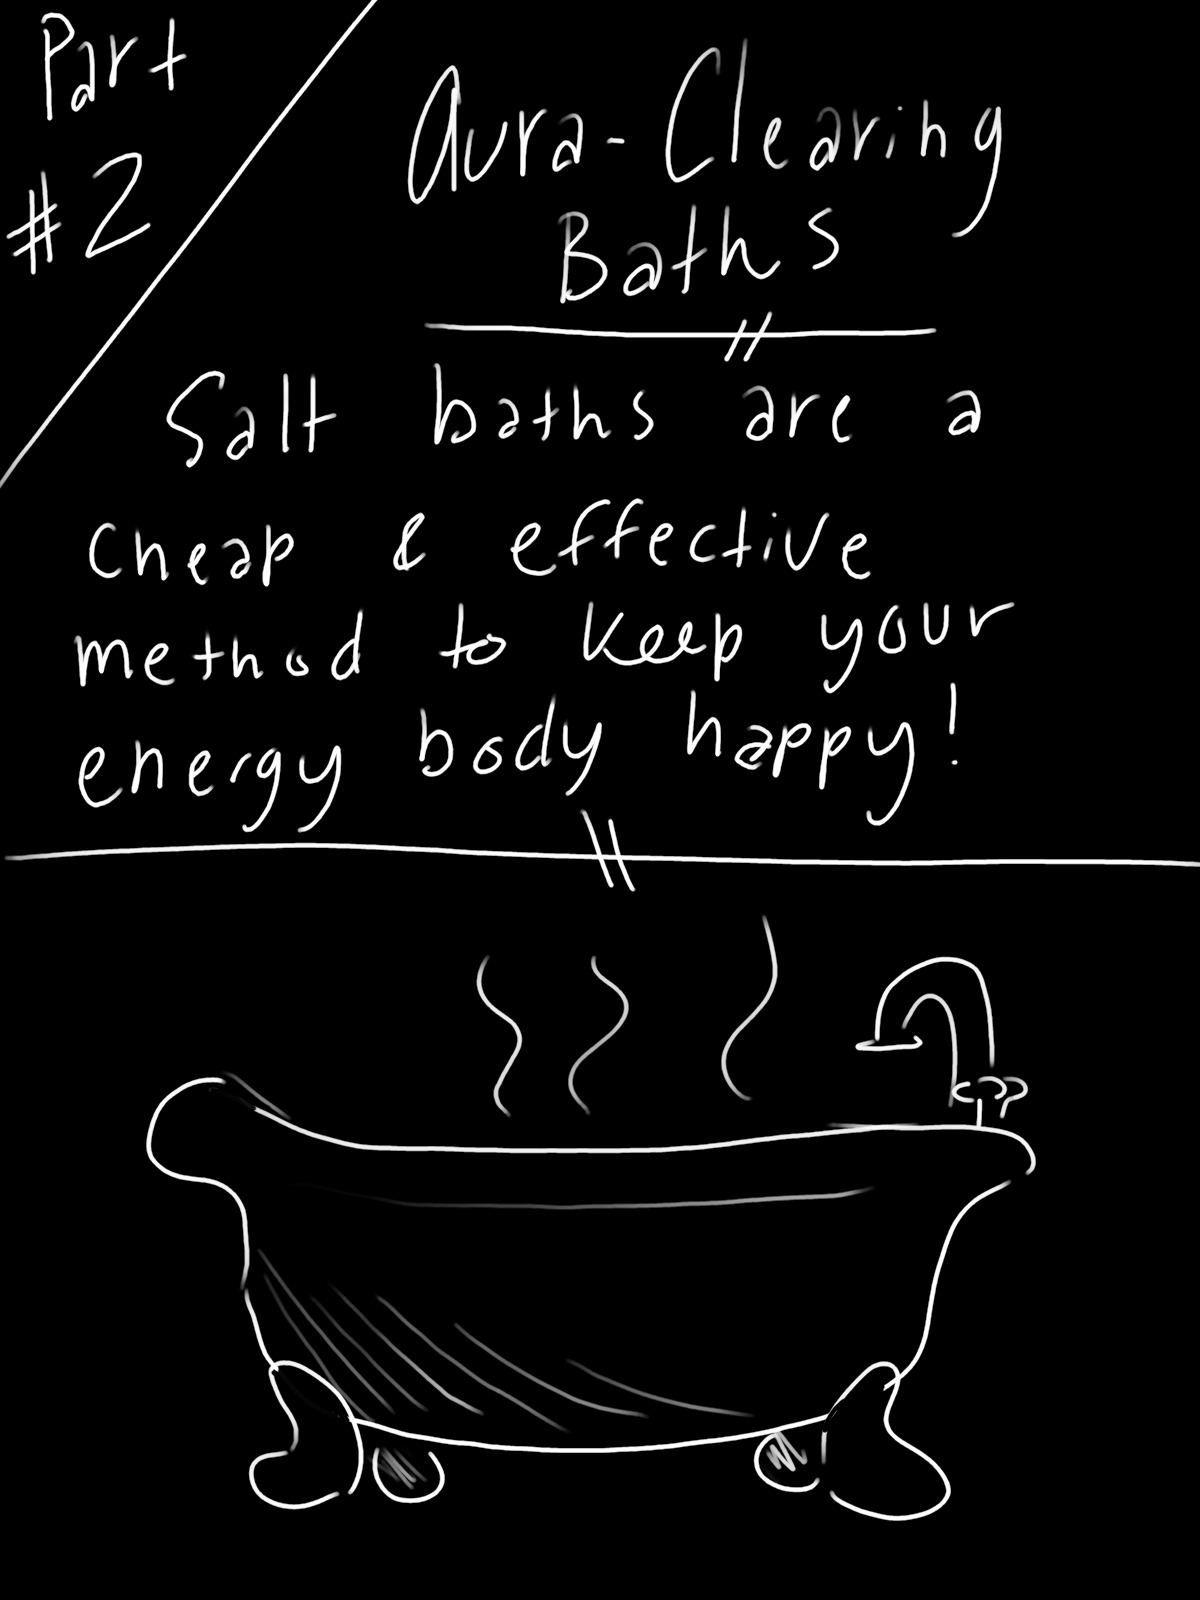 Part
#2
Aura-Clearing
Baths
Salt baths are a
cheap & effective
method to keep your
energy body happy!